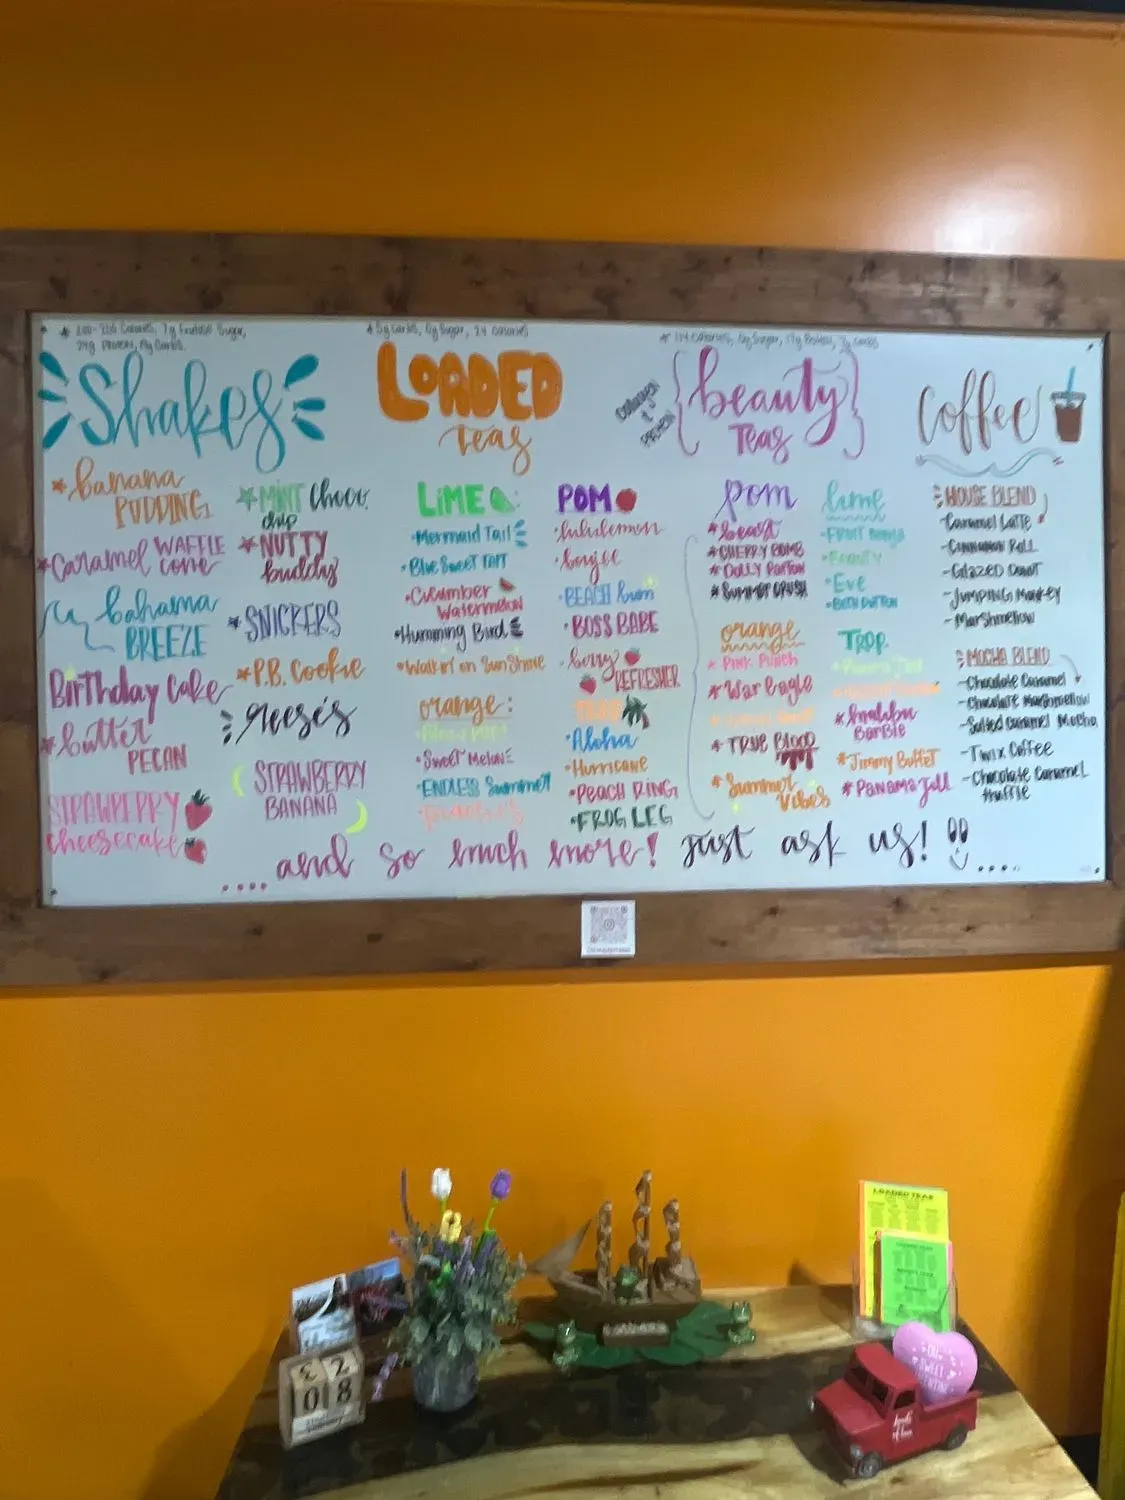 Calories, 7g Sugar,
24g Protein,
Shakes
* banana
PUDDING
* Caramel WAFFLE
cone
bahama
BREEZE
Birthday Cake
* butter
PECAN
STRAWBERRY
cheesecake
* MINT choco.
chip
* NUTTY
buddy
* SNICKERS
* P.B. Cookie
Reese's
STRAWBERRY
BANANA
Carbs, 0g Sugar, 24 Calories
LOADED
Teas
LIME
• Mermaid Tail
• Blue Sweet TART
• Cucumber
Watermelon
• Humming Bird
• Walkin' on SunShine
orange:
• Sweet Melon
• ENDLESS Summer
POM
• lululemon
• boujee
• BEACH bum
• BOSS BABE
• berry
REFRESHER
TROP
• Aloha
• Hurricane
• PEACH RING
• FROG LEG
Collagen
&
PROTEIN
Calories, 0g Sugar, Carbs
beauty
Teas
pom
* beast
* CHERRY BOMB
* DOLLY PARTON
* SUMMER CRUSH
orange
* PINK PUNCH
* War Eagle
* TRUE BLOOD
* Summer
Vibes
lime
• Eve
TROP.
* malibu
Barbie
* Jimmy Buffet
* Panama Jall
Coffee
HOUSE BLEND
- Caramel Latte
- Cinnamon Roll
- Glazed Donut
- Jumping Monkey
- Marshmellow
MOCHA BLEND
- Chocolate Caramel
- Chocolate Marshmellow
- Salted Caramel Mocha
- Twix Coffee
- Chocolate Caramel
truffle
.... and so much more! Just ask us! ....
LOADED TEAS
3 2
0 8